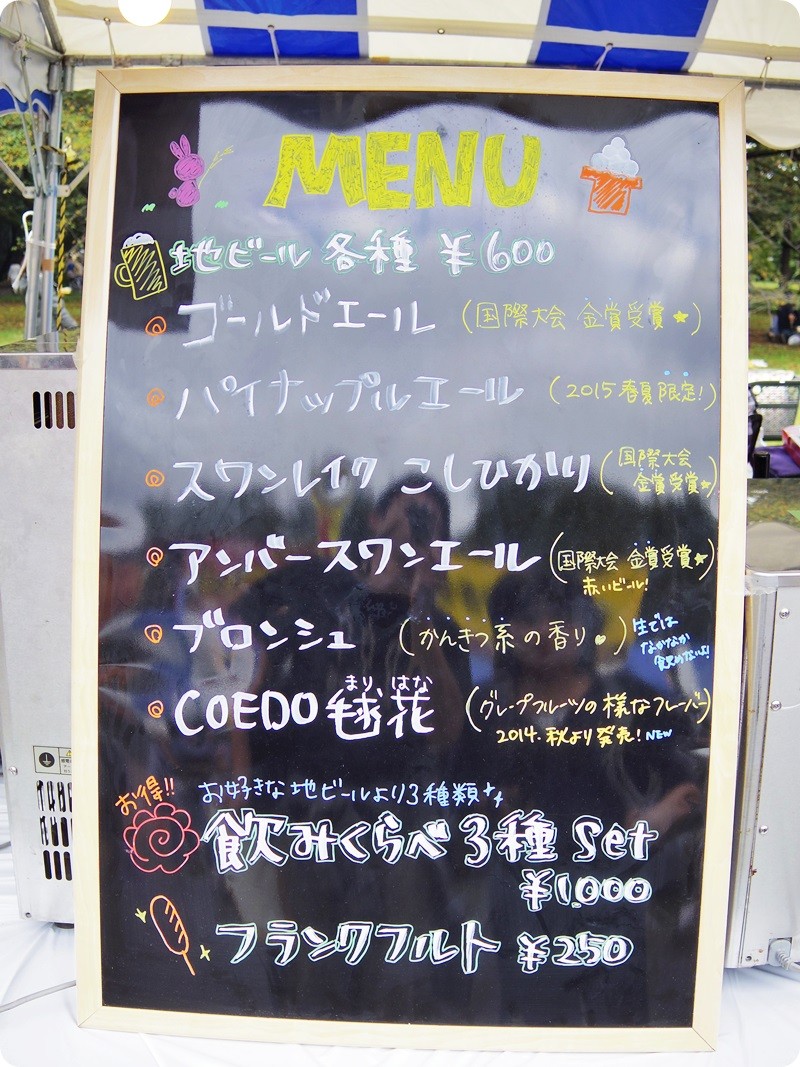 MENU
地ビール 各種 ¥600
ゴールドエール (国際大会 金賞受賞★)
パイナップルエール (2015春夏限定!)
スワンレイク こしひかり (国際大会
金賞受賞★)
アンバースワンエール (国際大会 金賞受賞★)
赤いビール!
ブロンシュ (かんきつ系の香り♥) 生では
なかなか
飲めないよ!
まり はな
COEDO毬花 (グレープフルーツの様なフレーバー)
2014.秋より発売!NEW
お得!!
お好きな地ビールより3種類
飲みくらべ3種 Set
¥1,000
フランクフルト ¥250